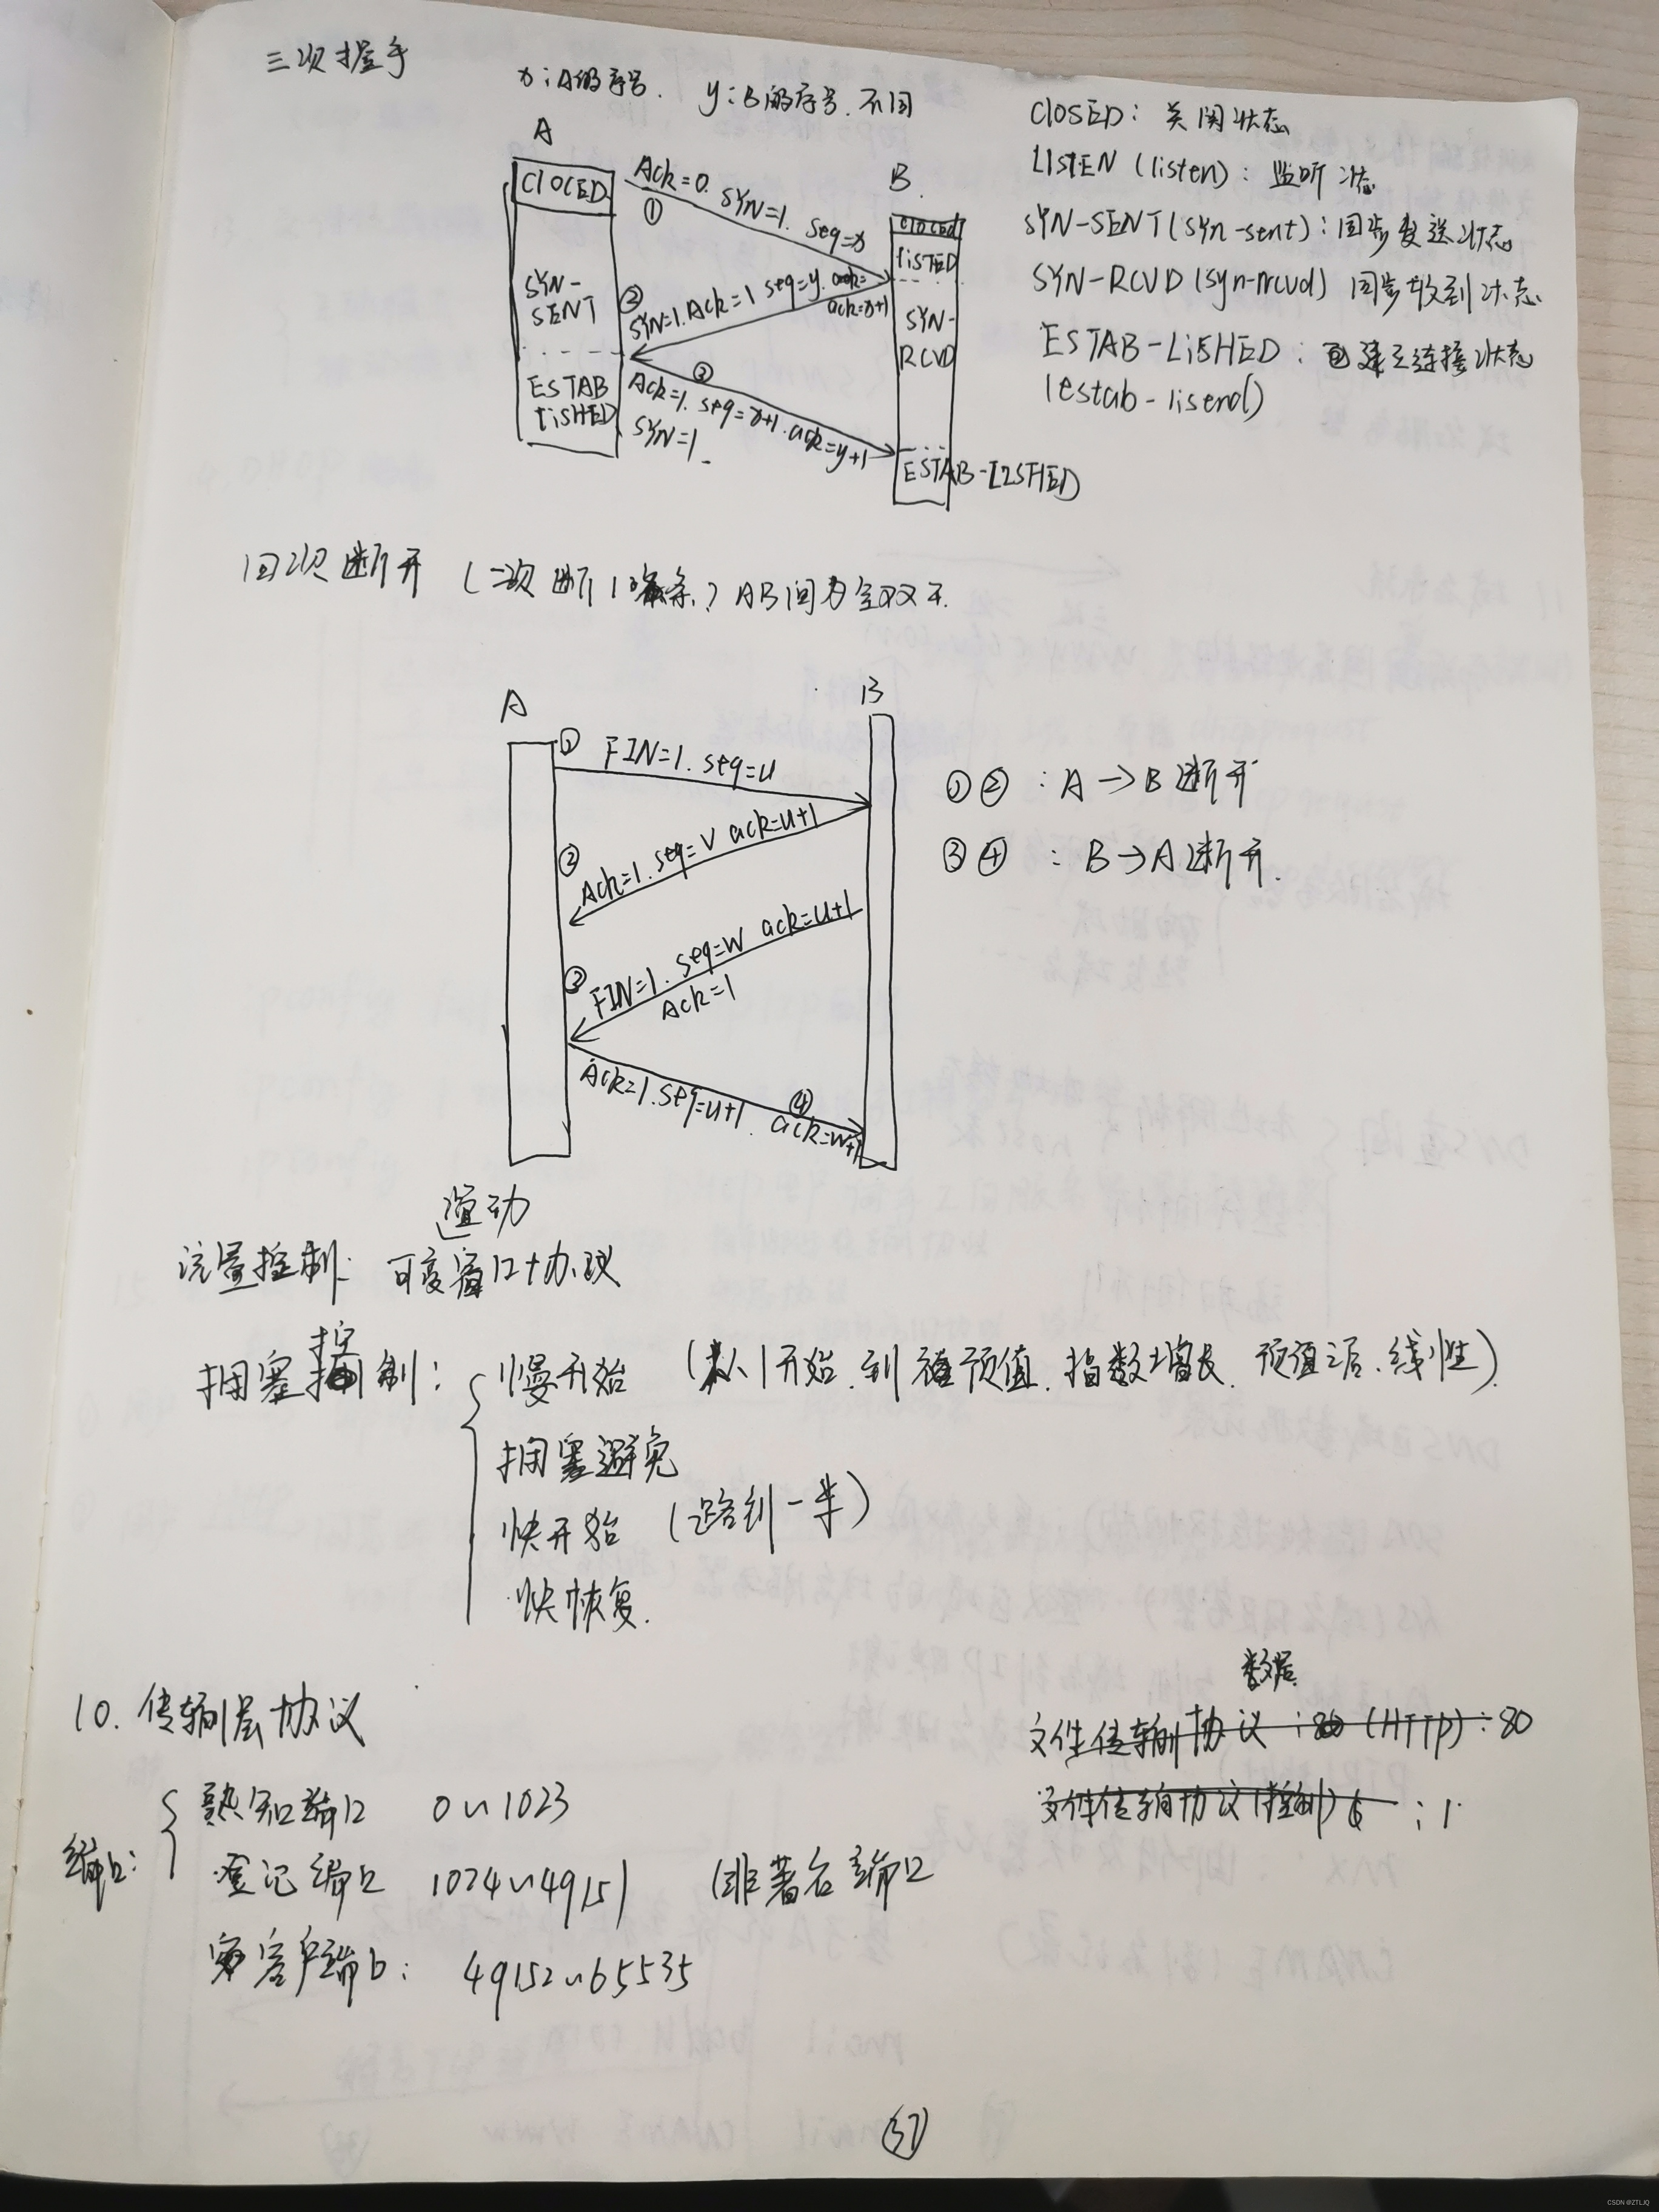 三次握手
x:A的序号. y:B的序号.不同
A
B
CLOCED
SYN-
SENT
ESTAB
LiSHED
Ack=0. SYN=1. seq=x
①
②
SYN=1.Ack=1 seq=y.
ack=x+1
③
Ack=1. seq=x+1.ack=y+1
SYN=1
CLOCED
LiSTED
SYN-
RCVD
ESTAB-LISHED
CLOSED: 关闭状态
LISTEN (listen): 监听状态
SYN-SENT (syn-sent):同步发送状态
SYN-RCVD (syn-rcvd) 同步收到状态
ESTAB-LiSHED: 已建立连接状态
(estab-lisend)
四次断开 (二次断1条) AB间为全双工.
A
B
① FIN=1. seq=u
②
Ack=1. seq=v ack=u+1
③
FIN=1. seq=w ack=u+1
Ack=1
Ack=1.seq=u+1. ack=w+1
④
①② : A→B断开
③④ : B→A断开.
流量控制: 可变窗口协议
拥塞控制:
慢开始 (从1开始.到预值.指数增长.预值之后.线性).
拥塞避免
快开始 (一半)
快恢复.
10. 传输层协议
端口:
熟知端口 0~1023
登记端口 1024~49151 (非著名端口
客户端口: 49152~65535
数据
文件传输协议 (HTTP):80
文件传输协议(控制) :1
37
CSDN @ZTLJQ